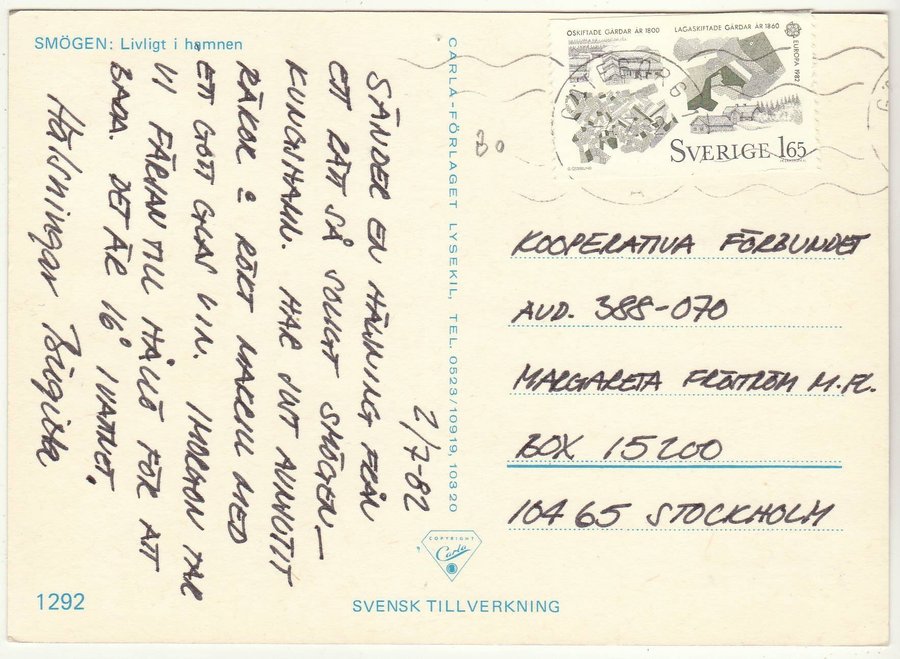 SMÖGEN: Livligt i hamnen
2/7-82
SÄNDER EN HÄLSNING FRÅN
ETT RÄTT SÅ SOLIGT SMÖGEN –
KUNGSHAMN. HAR JUST AVNJUTIT
RÄKOR & RÖKT MAKRILL MED
ETT GOTT GLAS VIN. IMORGON TAR
VI FÄRJAN TILL HÅLLÖ FÖR ATT
BADA. DET ÄR 16° I VATTNET.
Hälsningar Birgitta
CARLA-FÖRLAGET LYSEKIL, TEL. 0523/10919, 10320
BO
OSKIFTADE GÅRDAR ÅR 1800
LAGASKIFTADE GÅRDAR ÅR 1860
EUROPA 1982
SVERIGE 165
KOOPERATIVA FÖRBUNDET
AVD. 388-070
MARGARETA FRÖSTRÖM M.FL.
BOX 15200
104 65 STOCKHOLM
COPYRIGHT
Carla
1292
SVENSK TILLVERKNING